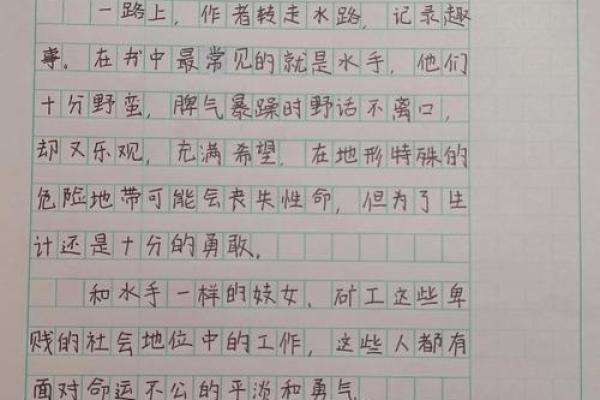 一路上，作者转走水路，记录趣
事。在书中最常见的就是水手，他们
十分野蛮，脾气暴躁时野话不离口，
却又乐观，充满希望，在地形特殊的
危险地带可能会丧失性命，但为了生
计还是十分的勇敢。
和水手一样的妓女、矿工这些卑
贱的社会地位中的工作，这些人都有
面对命运不公的平淡和勇气